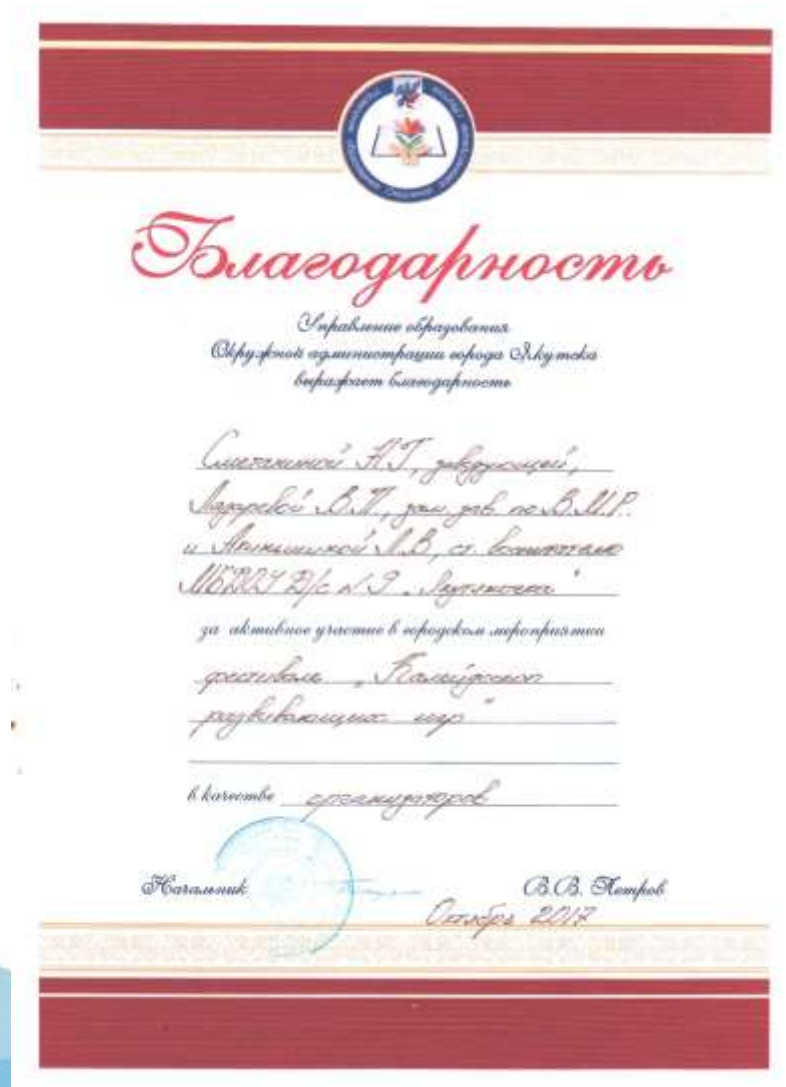 Благодарность
Управление образования
Окружной администрации города Якутска
выражает благодарность
Сметаниной Н.Г., заведующей,
Лазаревой В.П., зам. зав. по В.М.Р.
и Акиньшиной Л.В, ст. воспитателю
МБДОУ Д/с N 9 „Якутяночка"
за активное участие в городском мероприятии
фестиваль „Калейдоскоп
развивающих игр"
в качестве организаторов
Начальник В.В. Петров
Октябрь 2017